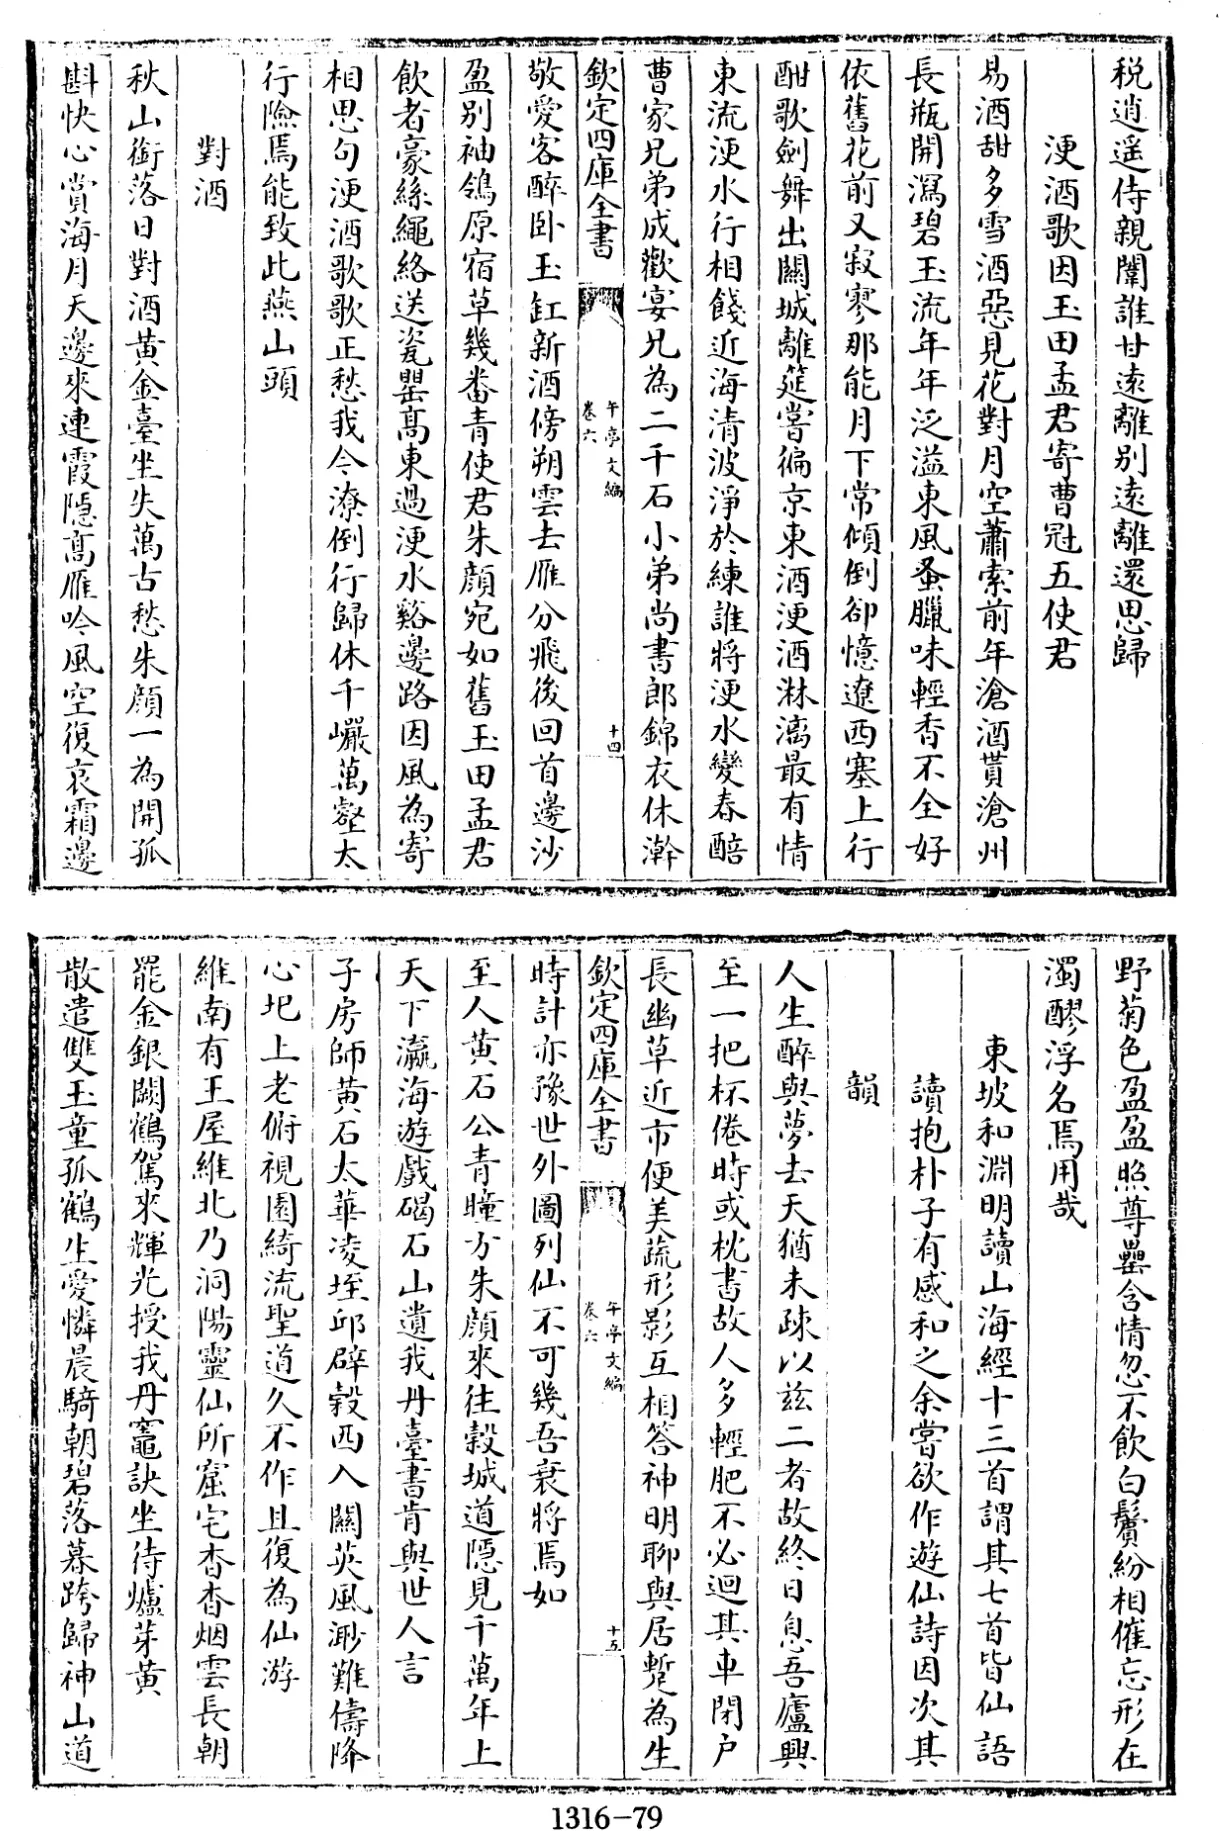 稅逍遥侍親闈誰甘遠離别遠離還思歸
浭酒歌因玉田孟君寄曹冠五使君
易酒甜多雪酒惡見花對月空蕭索前年滄酒貰滄州
長瓶開瀉碧玉流年年泛溢東風蚤臘味輕香不全好
依舊花前又寂寥那能月下常傾倒卻憶遼西塞上行
酣歌劍舞出關城離筵嘗徧京東酒浭酒淋漓最有情
東流浭水行相餞近海清波淨於練誰將浭水變春醅
曹家兄弟成歡宴兄為二千石小弟尚書郎錦衣休澣
欽定四庫全書
午亭文編
卷六
十四
敬愛客醉卧玉缸新酒傍朔雲去雁分飛後回首邊沙
盈别袖鴒原宿草幾番青使君朱顔宛如舊玉田孟君
飲者豪絲繩絡送瓷罌高東過浭水谿邊路因風為寄
相思句浭酒歌歌正愁我今潦倒行歸休千巗萬壑太
行險焉能致此燕山頭
對酒
秋山銜落日對酒黄金臺坐失萬古愁朱顔一為開孤
斟快心賞海月天邊來連霞隱高雁吟風空復哀霜邊
野菊色盈盈照尊罍含情忽不飲白鬢紛相催忘形在
濁醪浮名焉用哉
東坡和淵明讀山海經十三首謂其七首皆仙語
讀抱朴子有感和之余嘗欲作遊仙詩因次其
韻
人生醉與夢去天猶未疎以兹二者故終日息吾廬興
至一把杯倦時或枕書故人多輕肥不必迴其車閉户
長幽草近市便美蔬形影互相答神明聊與居蹔為生
欽定四庫全書
午亭文編
卷六
十五
時計亦豫世外圖列仙不可幾吾衰將焉如
至人黄石公青瞳方朱顔來往榖城道隱見千萬年上
天下瀛海遊戲碣石山遺我丹臺書肯與世人言
子房師黄石太華凌垤邱辟榖西入關英風渺難儔降
心圯上老俯視園綺流聖道久不作且復為仙游
維南有王屋維北乃洞陽靈仙所窟宅杳杳烟雲長朝
罷金銀闕鶴駕來輝光授我丹竈訣坐待爐芽黄
散遣雙玉童孤鶴生愛憐晨騎朝碧落暮跨歸神山道
1316-79